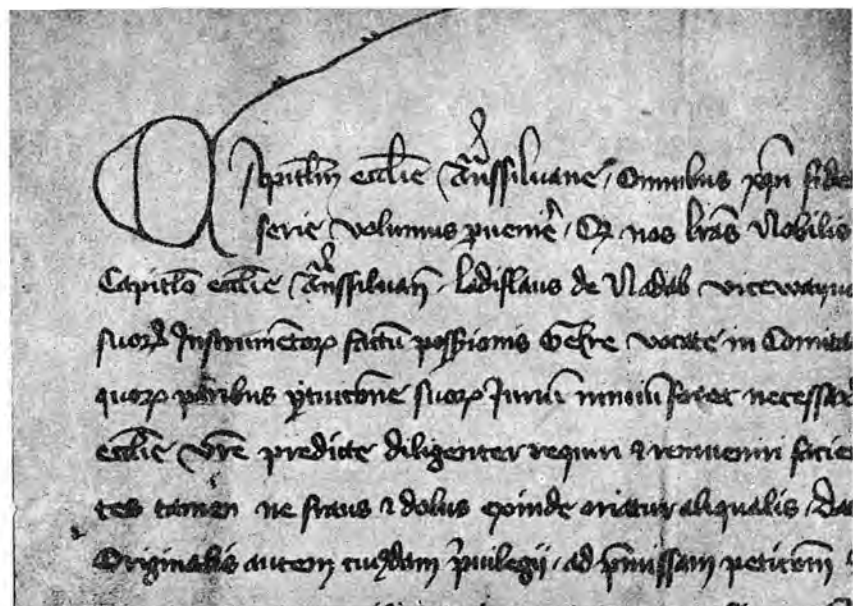 Capitlm ecclie Transsiluane, Omnibus xpi fide
serie volumus puenire, Qz nos lras Nobilis
Capitlo eccliе Transsiluan. ladislaus de Nadab vicewayuo
suorz Instrumentorz factum possessionis Gekre vocate in Comita
quorz paribus suorz Jurium nimium foret necessar
ecclie vre predicte diligenter requiri & reinueniri facie
tes tamen ne fraus & dolus exinde oriatur aliqualis, Da
Originalis autem cuiusdam priuilegij, ad pmissam peticoem